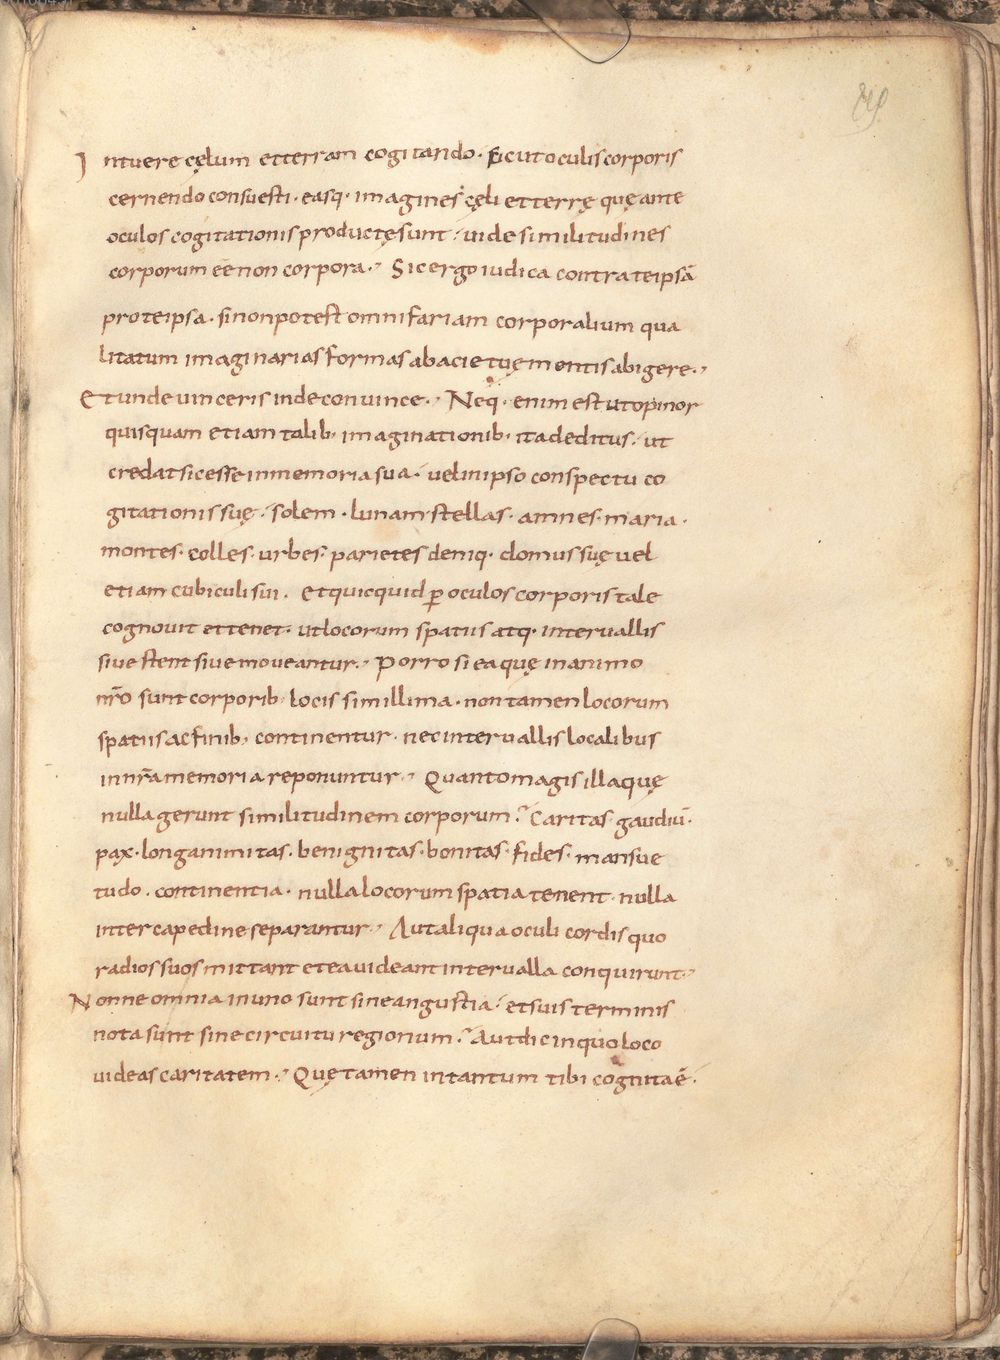 Intuere cęlum et terram cogitando. sicut oculis corporis
cernendo consuesti. easq; imagines cęli et terrę quę ante
oculos cogitationis productę sunt. uide similitudines
corporum eē non corpora. Sic ergo iudica contra te ipsā
pro te ipsa. si non potest omnifariam corporalium qua
litatum imaginarias formas ab acie tuę mentis abigere.
Et unde uinceris inde conuince. Neq. enim est ut opinor
quisquam etiam talib. imaginationib. ita deditus. ut
credat sic esse in memoria sua. uel in ipso conspectu co
gitationis suę. solem. lunam. stellas. amnes. maria.
montes. colles. urbes. parietes deniq. domus suę uel
etiam cubiculi sui. Et quicquid ꝑ oculos corporis tale
cognouit et tenet. ut locorum spatiis atq. interuallis
siue stent siue moueantur. Porro si ea quę in animo
nr̄o sunt corporib. locis simillima. non tamen locorum
spatiis ac finib. continentur. nec interuallis localibus
in nr̄a memoria reponuntur. Quanto magis illa quę
nulla gerunt similitudinem corporum? Caritas. gaudiū.
pax. longanimitas. benignitas. bonitas. fides. mansue
tudo. continentia. nulla locorum spatia tenent. nulla
intercapedine separantur. Aut aliqua oculi cordis quo
radios suos mittant et ea uideant interualla conquirunt.
Nonne omnia in uno sunt sine angustia. et suis terminis
nota sunt sine circuitu regionum? Aut dic in quo loco
uideas caritatem. Quę tamen in tantum tibi cognita ē.